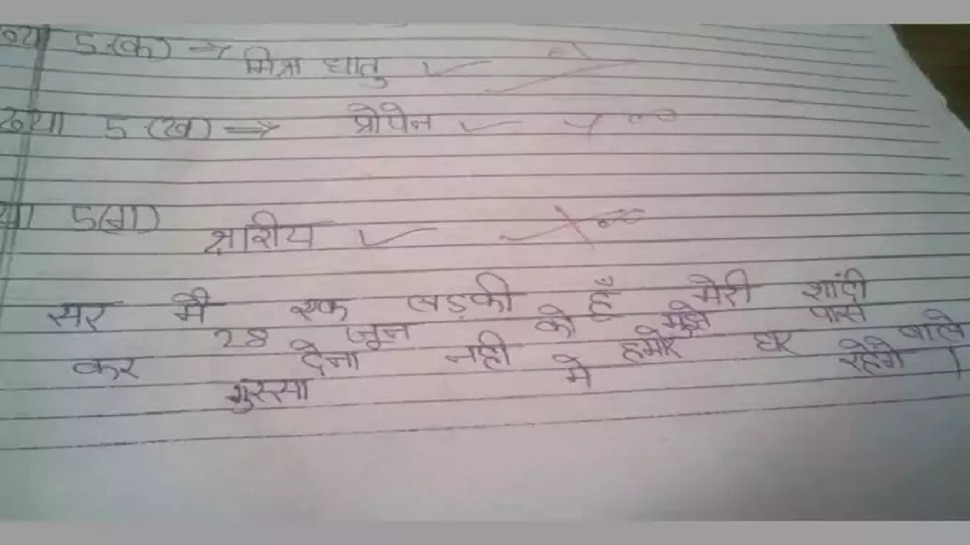 5.(क) → मिश्रा धातु
5 (ख) ⇒ प्रोपेन
5(ग)
क्षारीय
सर मै एक लड़की हूँ मेरी शादी
28 जून को है मुझे पास
कर देना नही हमारे घर वाले
गुस्सा मे रहेगे ।